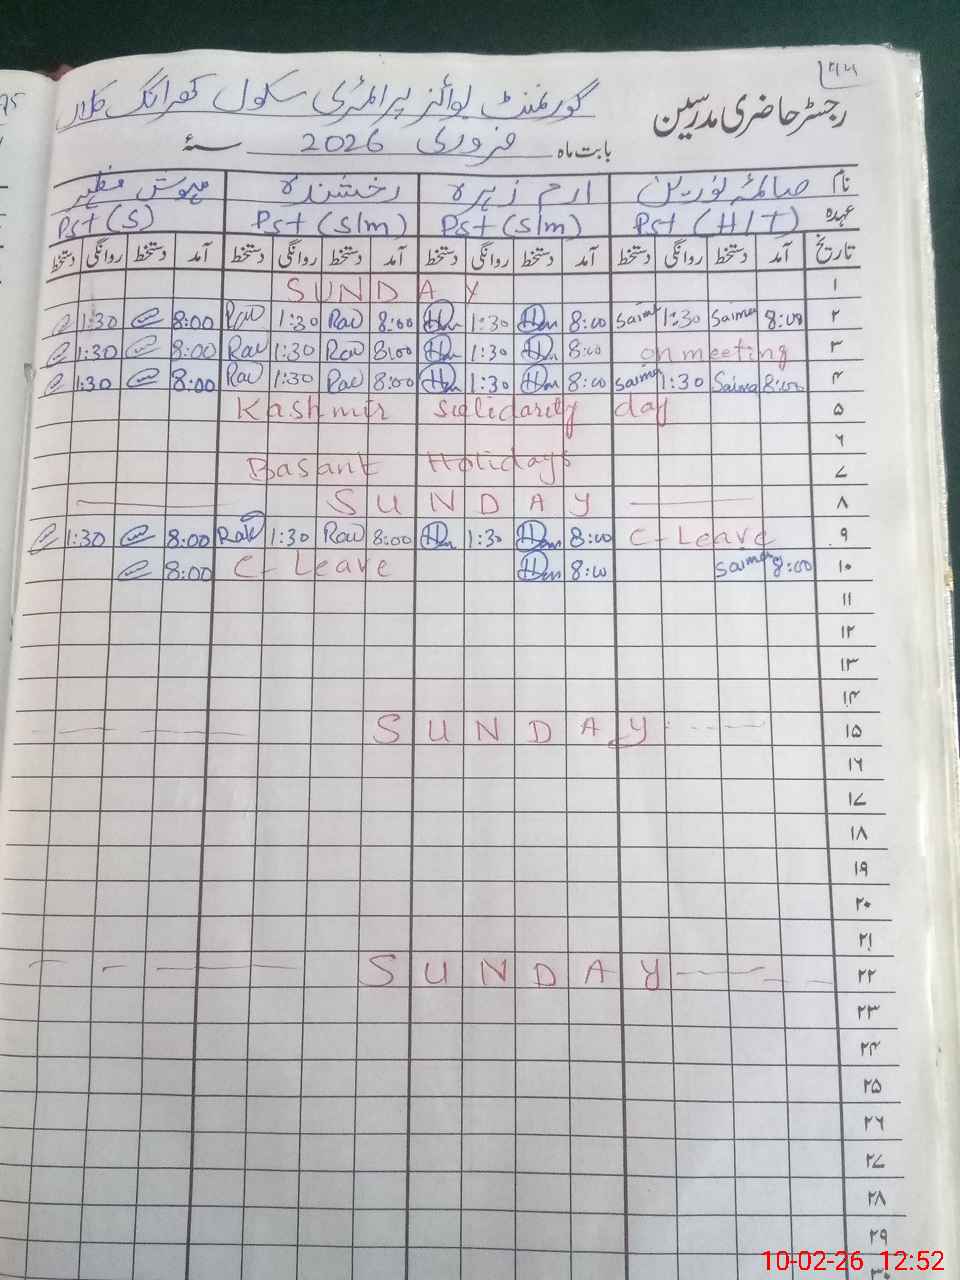 ۲۴
رجسٹر حاضری مدرسین
گورنمنٹ بوائز پرائمری سکول کلاں
بابت ماہ فروری 2026 سنہ
نام صائمہ نورین ارم زہرہ رخشندہ مہوش مظہر
عہدہ Pst (H/T) Pst (S/m) Pst (S/m) Pst (S)
تاریخ آمد دستخط روانگی دستخط آمد دستخط روانگی دستخط آمد دستخط روانگی دستخط آمد دستخط روانگی دستخط
۱ SUNDAY
۲ 8:00 Saima 1:30 Saima 8:00 1:30 8:00 Rau 1:30 Rau 8:00 1:30
۳ on meeting 8:00 1:30 8:00 Rau 1:30 Rau 8:00 1:30
۴ 8:00 Saima 1:30 Saima 8:00 1:30 8:00 Rau 1:30 Rau 8:00 1:30
۵ Kashmir Solidarity day
۶
۷ Basant Holidays
۸ SUNDAY
۹ C-Leave 8:00 1:30 8:00 Rau 1:30 Rau 8:00 1:30
۱۰ 8:00 Saima 8:00 C-Leave 8:00
۱۱
۱۲
۱۳
۱۴
۱۵ SUNDAY
۱۶
۱۷
۱۸
۱۹
۲۰
۲۱
۲۲ SUNDAY
۲۳
۲۴
۲۵
۲۶
۲۷
۲۸
۲۹
۳۰
10-02-26 12:52